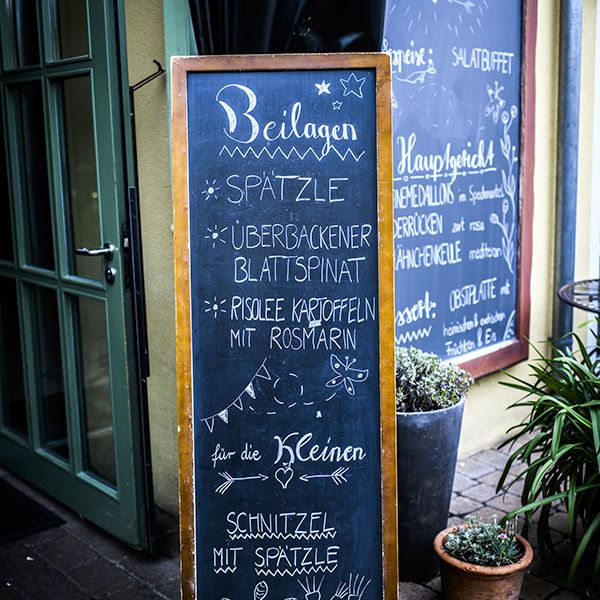 Beilagen
SPÄTZLE
ÜBERBACKENER
BLATTSPINAT
RISOLEE KARTOFFELN
MIT ROSMARIN
für die Kleinen
SCHNITZEL
MIT SPÄTZLE
SALATBUFFET
Hauptgericht
NEMEDALLONS in Speckmantel
ERRÜCKEN zart rosa
ÄHNCHENKEULE mediterran
OBSTPLATTE mit
heimischen & exotischen
Früchten &